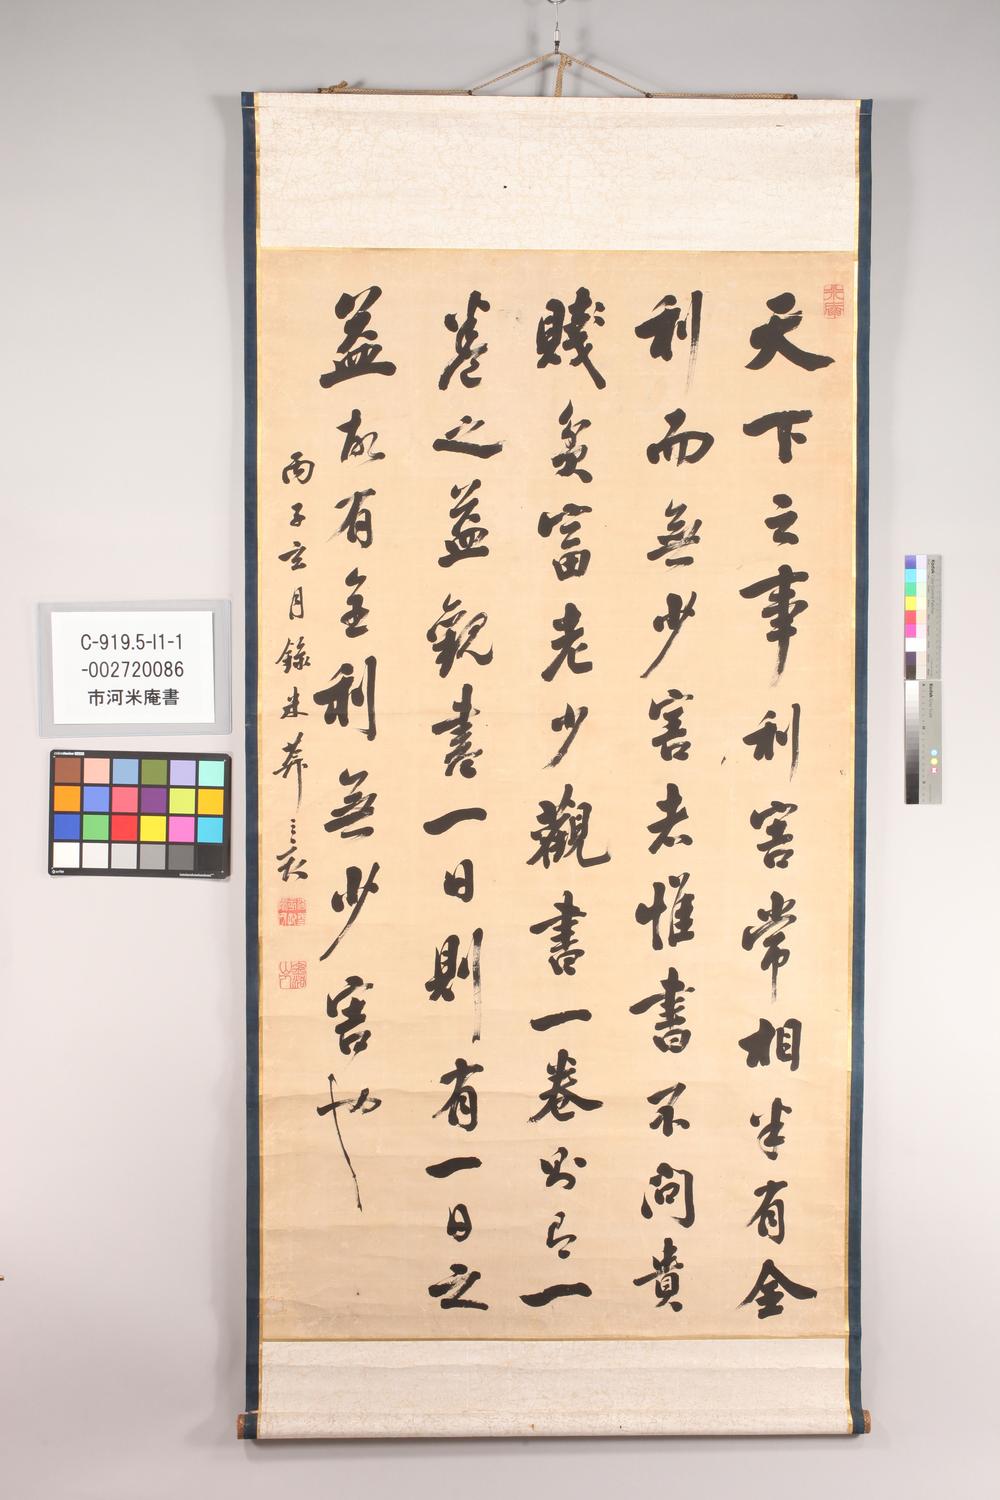 天下之事利害常相半有全
利而無少害者惟書不問貴
賤貧富老少觀書一卷則有一
卷之益觀書一日則有一日之
益故有全利無少害也
丙子亥月錄米葊三亥
C-919.5-I1-1
-002720086
市河米庵書